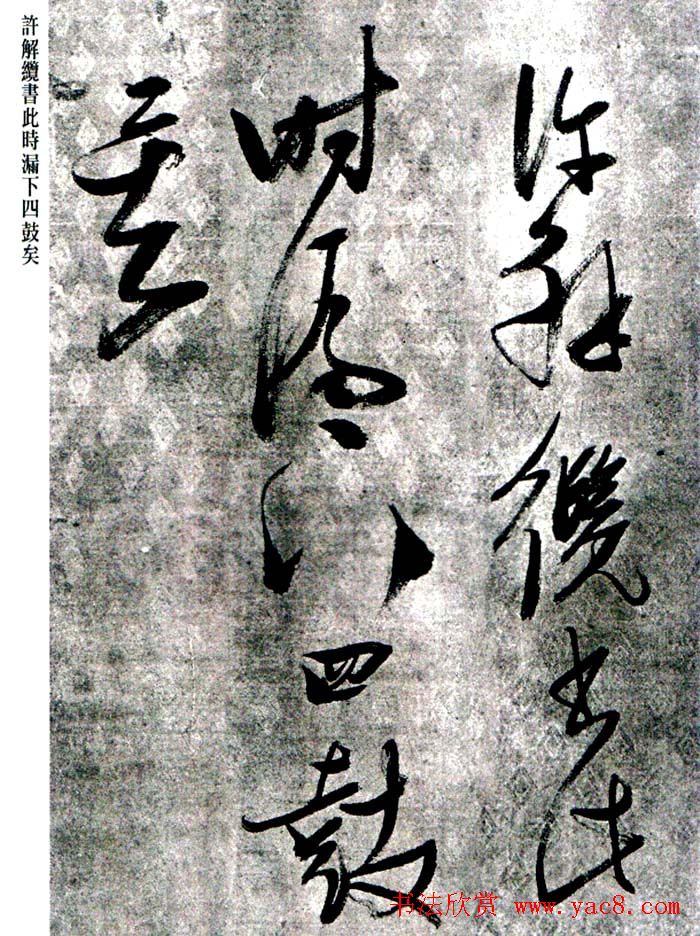 許解纜書此
時漏下四鼓
矣
許解纜書此時漏下四鼓矣
书法欣赏 www.yac8.com